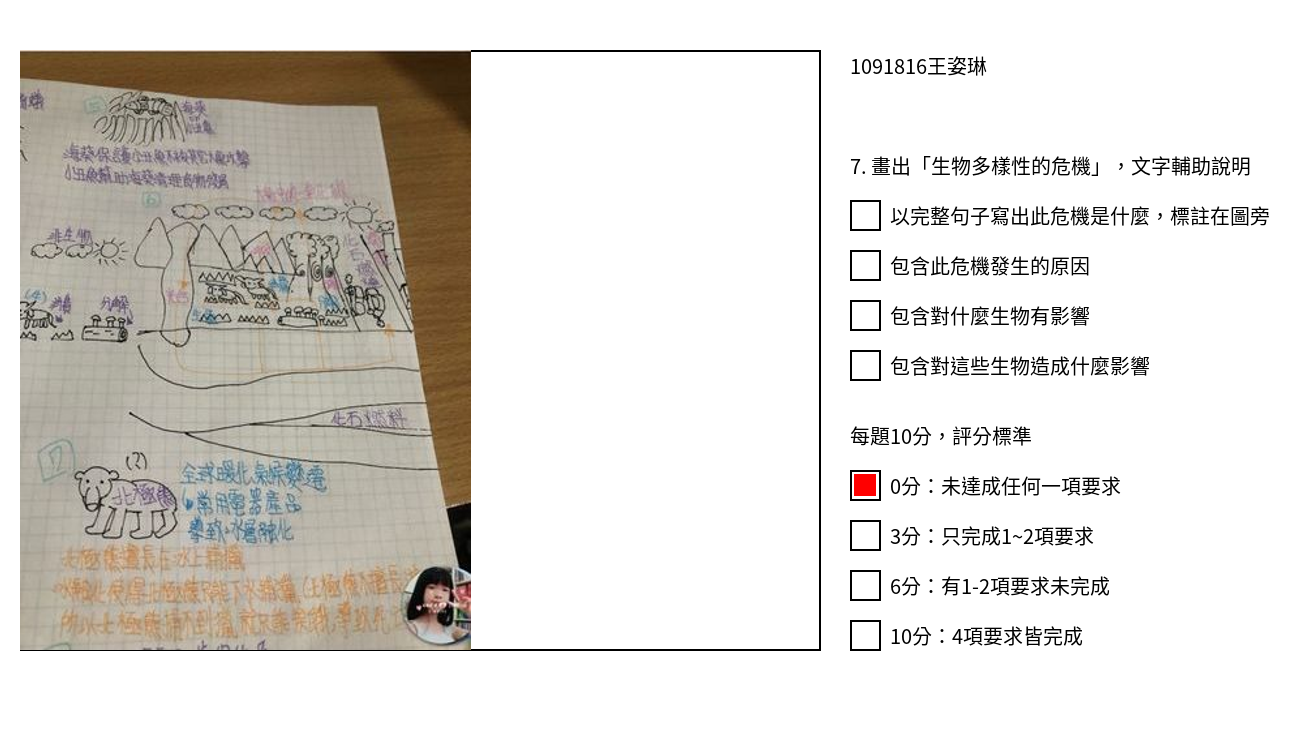 5
海葵
小丑魚
海葵保護小丑魚不被其它大魚攻擊
小丑魚幫助海葵清理食物殘屑
6
非生物
化石燃料
消費
分解
化石燃料
7
(2)
北極熊
全球暖化氣候變遷
↳常用電器產品
導致冰層融化
北極熊擅長在冰上捕獵
冰融化使得北極熊只能下水捕獵(北極熊不擅長
所以北極熊捕不到獵就只能 導致死
1091816王姿琳
7. 畫出「生物多樣性的危機」，文字輔助說明
以完整句子寫出此危機是什麼，標註在圖旁
包含此危機發生的原因
包含對什麼生物有影響
包含對這些生物造成什麼影響
每題10分，評分標準
0分：未達成任何一項要求
3分：只完成1~2項要求
6分：有1-2項要求未完成
10分：4項要求皆完成